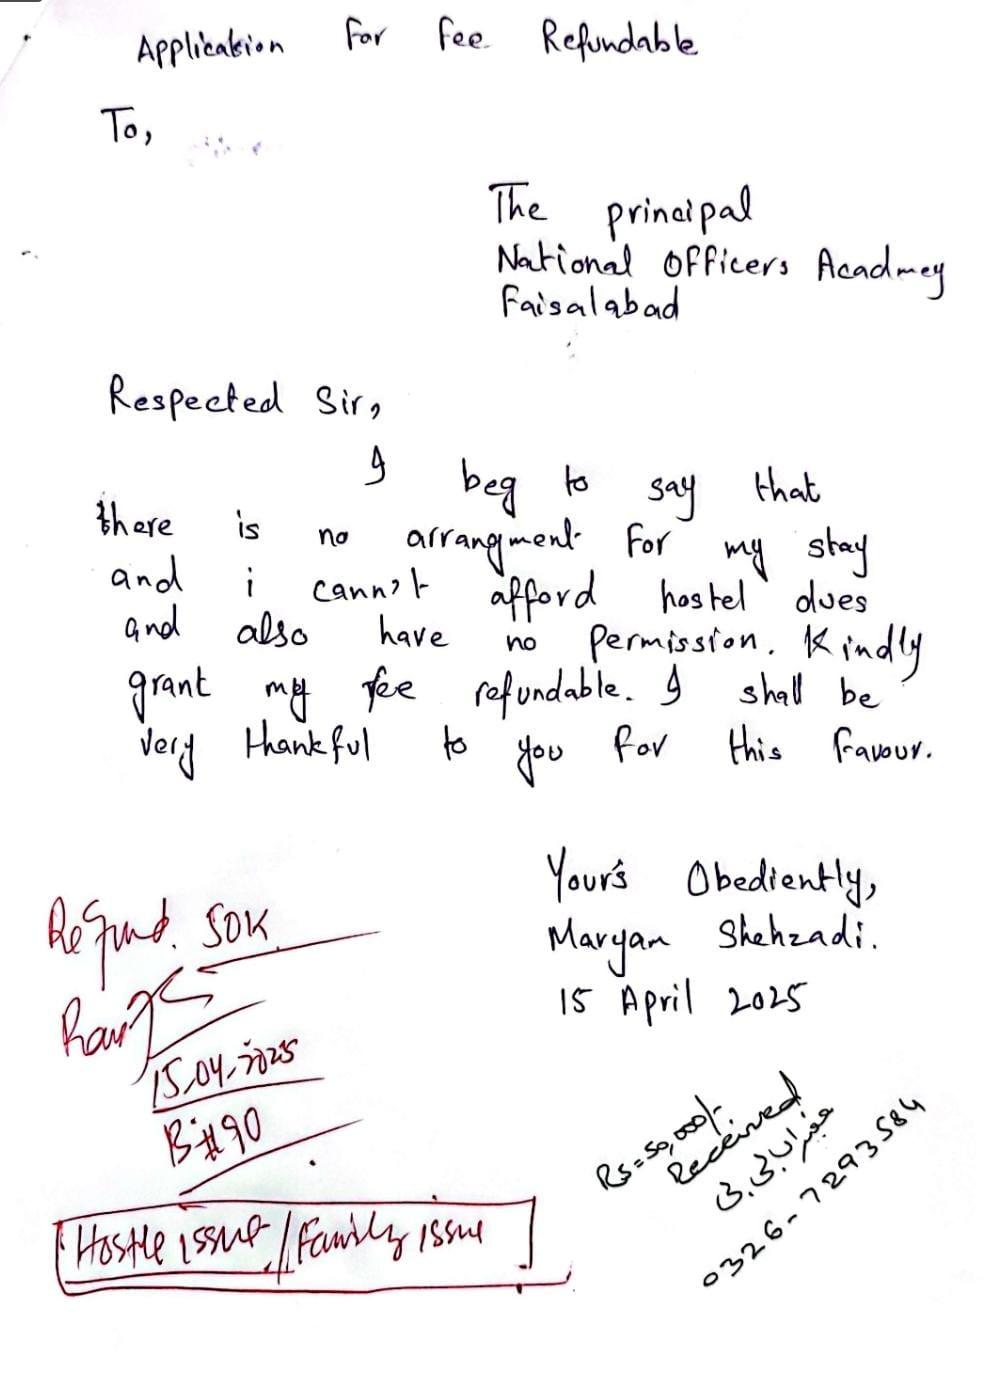 Application For Fee Refundable
To,
The principal
National Officers Acadmey
Faisalabad
Respected Sir,
I beg to say that
there is no arrangment for my stay
and i cann't afford hostel dues
and also have no permission. Kindly
grant my fee refundable. I shall be
very thankful to you for this favour.
Your's Obediently,
Maryam Shehzadi.
15 April 2025
Refund. 50K
15.04.2025
B#90
Hostle issue / Family issue
Rs=50,000/-
Received
0326-7293584